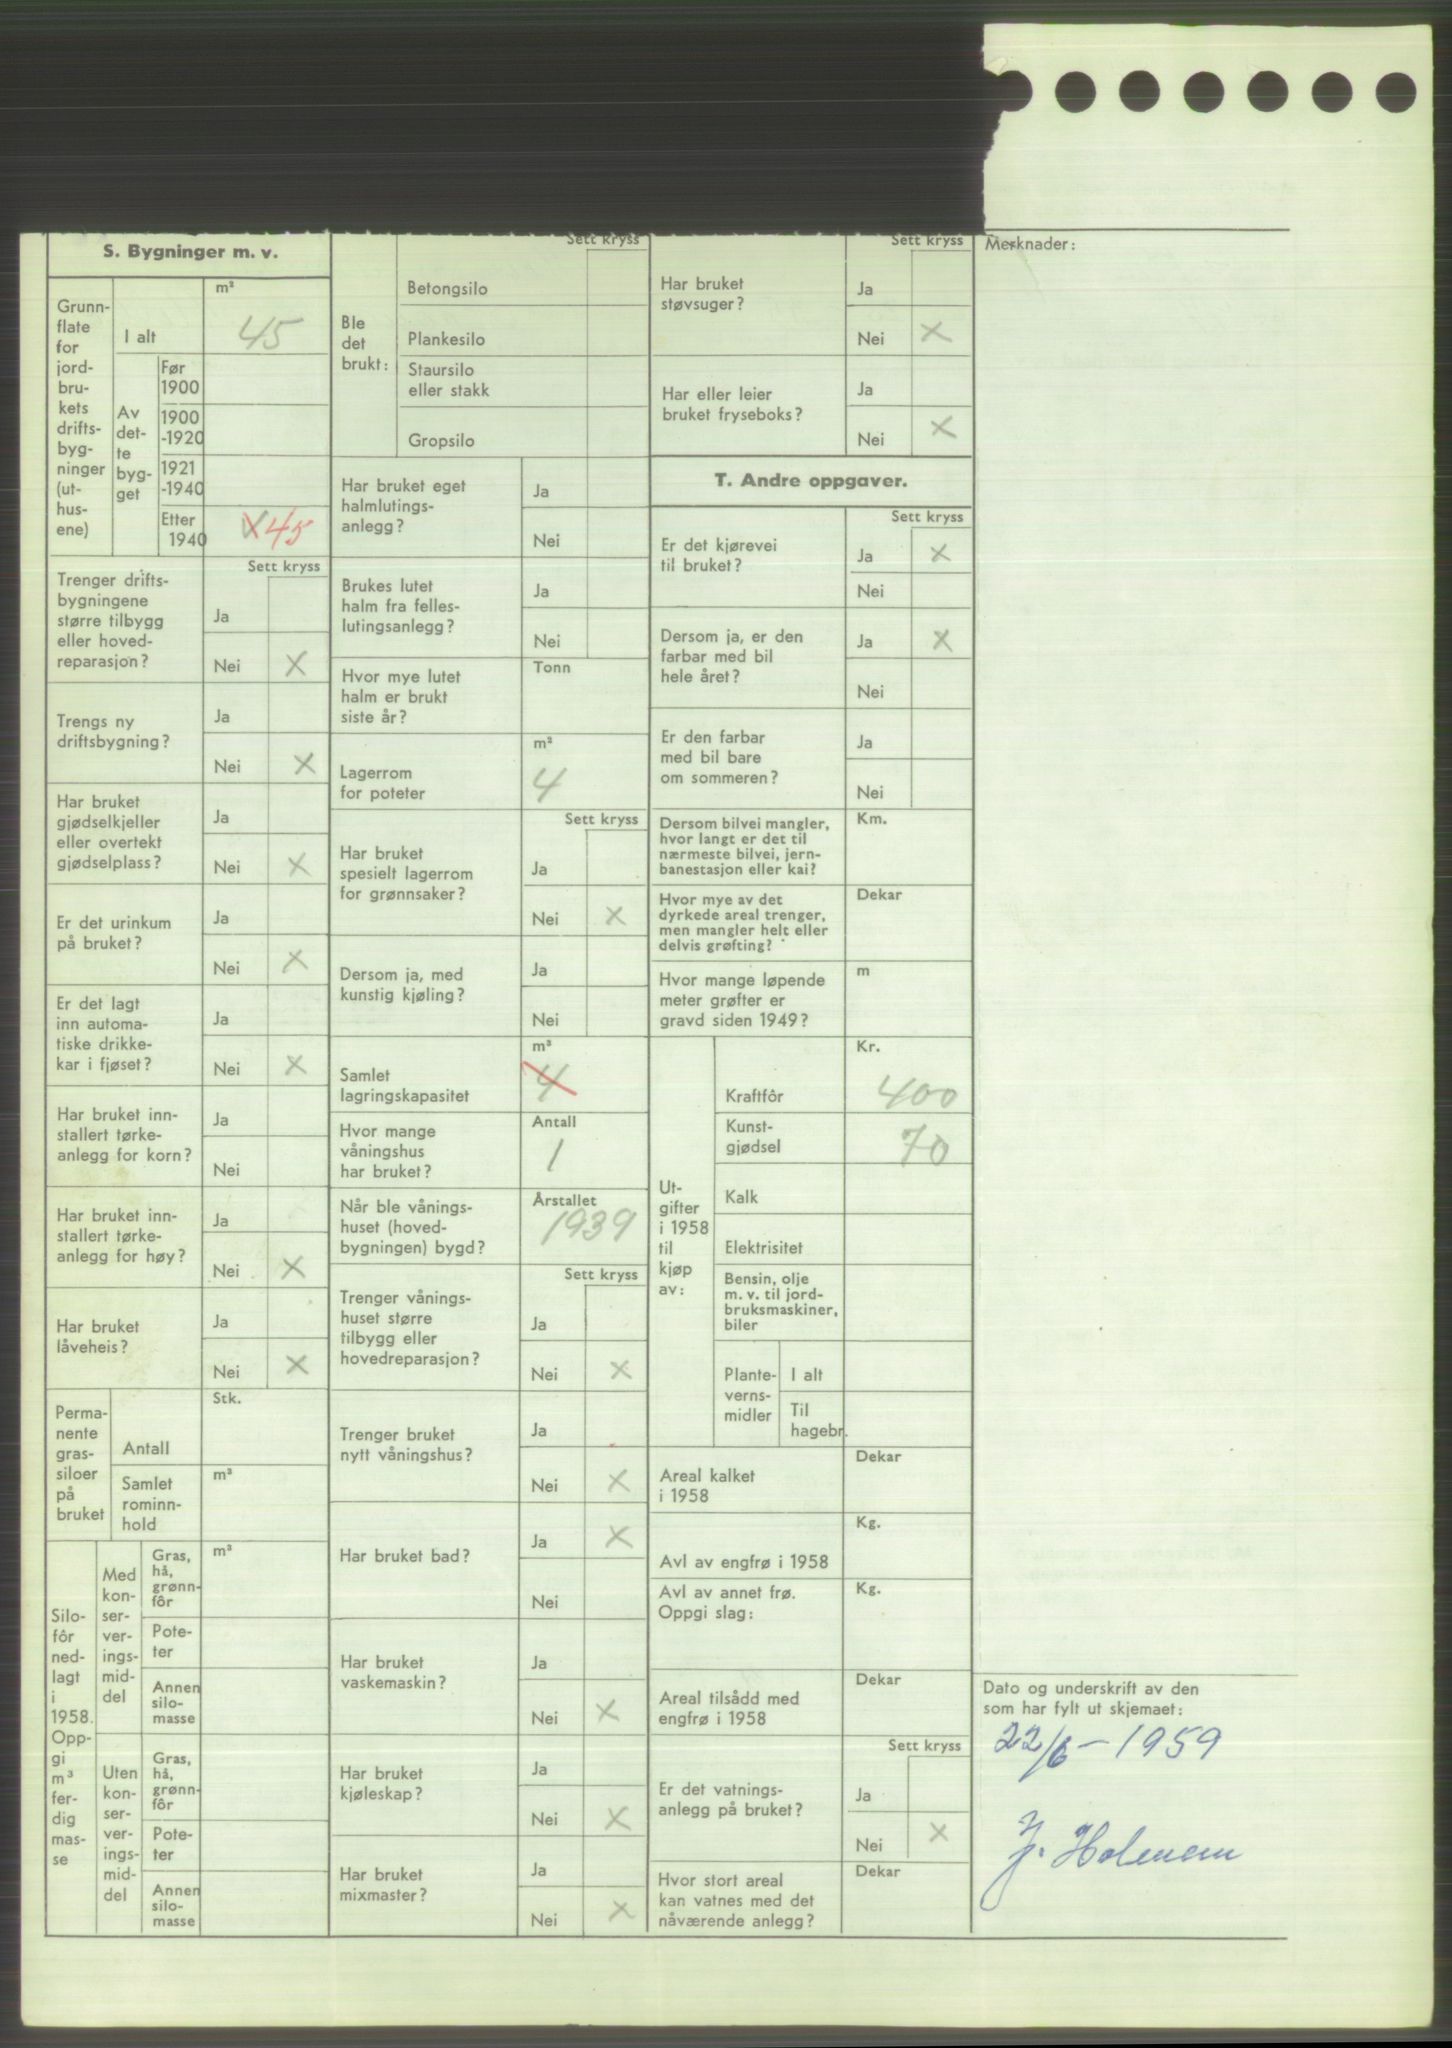 S. Bygninger m. v.
Grunn-
flate
for
jord-
bru-
kets
drifts-
byg-
ninger
(ut-
hus-
ene)
m²
I alt
45
Av
det-
te
byg-
get
Før
1900
1900
-1920
1921
-1940
Etter
1940
X 45
Sett kryss
Trenger drifts-
bygningene
større tilbygg
eller hoved-
reparasjon?
Ja
Nei X
Trengs ny
driftsbygning?
Ja
Nei X
Har bruket
gjødselkjeller
eller overtekt
gjødselplass?
Ja
Nei X
Er det urinkum
på bruket?
Ja
Nei X
Er det lagt
inn automa-
tiske drikke-
kar i fjøset?
Ja
Nei X
Har bruket inn-
stallert tørke-
anlegg for korn?
Ja
Nei
Har bruket inn-
stallert tørke-
anlegg for høy?
Ja
Nei X
Har bruket
låveheis?
Ja
Nei X
Perma-
nente
gras-
siloer
på
bruket
Stk.
Antall
Samlet
rominn-
hold
m³
Silo-
fôr
ned-
lagt
i
1958.
Opp-
gi
m³
fer-
dig
mas-
se
Med
kon-
ser-
ver-
ings-
mid-
del
Gras,
hå,
grønn-
fôr
m³
Pote-
ter
Annen
silo-
masse
Uten
kon-
ser-
ver-
ings-
mid-
del
Gras,
hå,
grønn-
fôr
Pote-
ter
Annen
silo-
masse
Sett kryss
Ble
det
brukt:
Betongsilo
Plankesilo
Staursilo
eller stakk
Gropsilo
Har bruket eget
halmlutings-
anlegg?
Ja
Nei
Brukes lutet
halm fra felles-
lutingsanlegg?
Ja
Nei
Hvor mye lutet
halm er brukt
siste år?
Tonn
Lagerrom
for poteter
m²
4
Sett kryss
Har bruket
spesielt lagerrom
for grønnsaker?
Ja
Nei X
Dersom ja, med
kunstig kjøling?
Ja
Nei
Samlet
lagringskapasitet
m³
4
Hvor mange
våningshus
har bruket?
Antall
1
Når ble vånings-
huset (hoved-
bygningen) bygd?
Årstallet
1939
Sett kryss
Trenger vånings-
huset større
tilbygg eller
hovedreparasjon?
Ja
Nei X
Trenger bruket
nytt våningshus?
Ja
Nei X
Har bruket bad?
Ja X
Nei
Har bruket
vaskemaskin?
Ja
Nei X
Har bruket
kjøleskap?
Ja
Nei X
Har bruket
mixmaster?
Ja
Nei X
Sett kryss
Har bruket
støvsuger?
Ja
Nei X
Har eller leier
bruket fryseboks?
Ja
Nei X
T. Andre oppgaver.
Sett kryss
Er det kjørevei
til bruket?
Ja X
Nei
Dersom ja, er den
farbar med bil
hele året?
Ja X
Nei
Er den farbar
med bil bare
om sommeren?
Ja
Nei
Dersom bilvei mangler,
hvor langt er det til
nærmeste bilvei, jern-
banestasjon eller kai?
Km.
Hvor mye av det
dyrkede areal trenger,
men mangler helt eller
delvis grøfting?
Dekar
Hvor mange løpende
meter grøfter er
gravd siden 1949?
m
Ut-
gifter
i 1958
til
kjøp
av:
Kr.
Kraftfôr
400
Kunst-
gjødsel
70
Kalk
Elektrisitet
Bensin, olje
m. v. til jord-
bruksmaskiner,
biler
Plante-
verns-
midler
I alt
Til
hagebr.
Areal kalket
i 1958
Dekar
Avl av engfrø i 1958
Kg.
Avl av annet frø.
Oppgi slag:
Kg.
Areal tilsådd med
engfrø i 1958
Dekar
Sett kryss
Er det vatnings-
anlegg på bruket?
Ja
Nei X
Hvor stort areal
kan vatnes med det
nåværende anlegg?
Dekar
Merknader:
Dato og underskrift av den
som har fylt ut skjemaet:
22/6-1959
J. Holmem